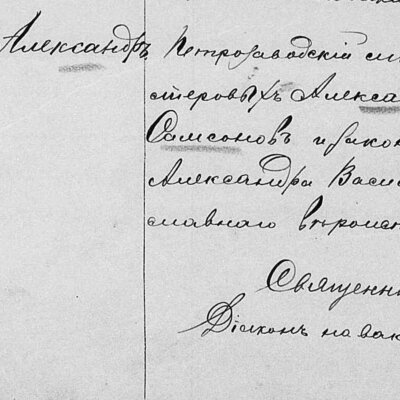 Александръ Петрозаводскій
стеровыхъ Алекса
Самсоновъ и закон
Александра Васи
славнаго вѣроис
Священн
Діаконъ на вак